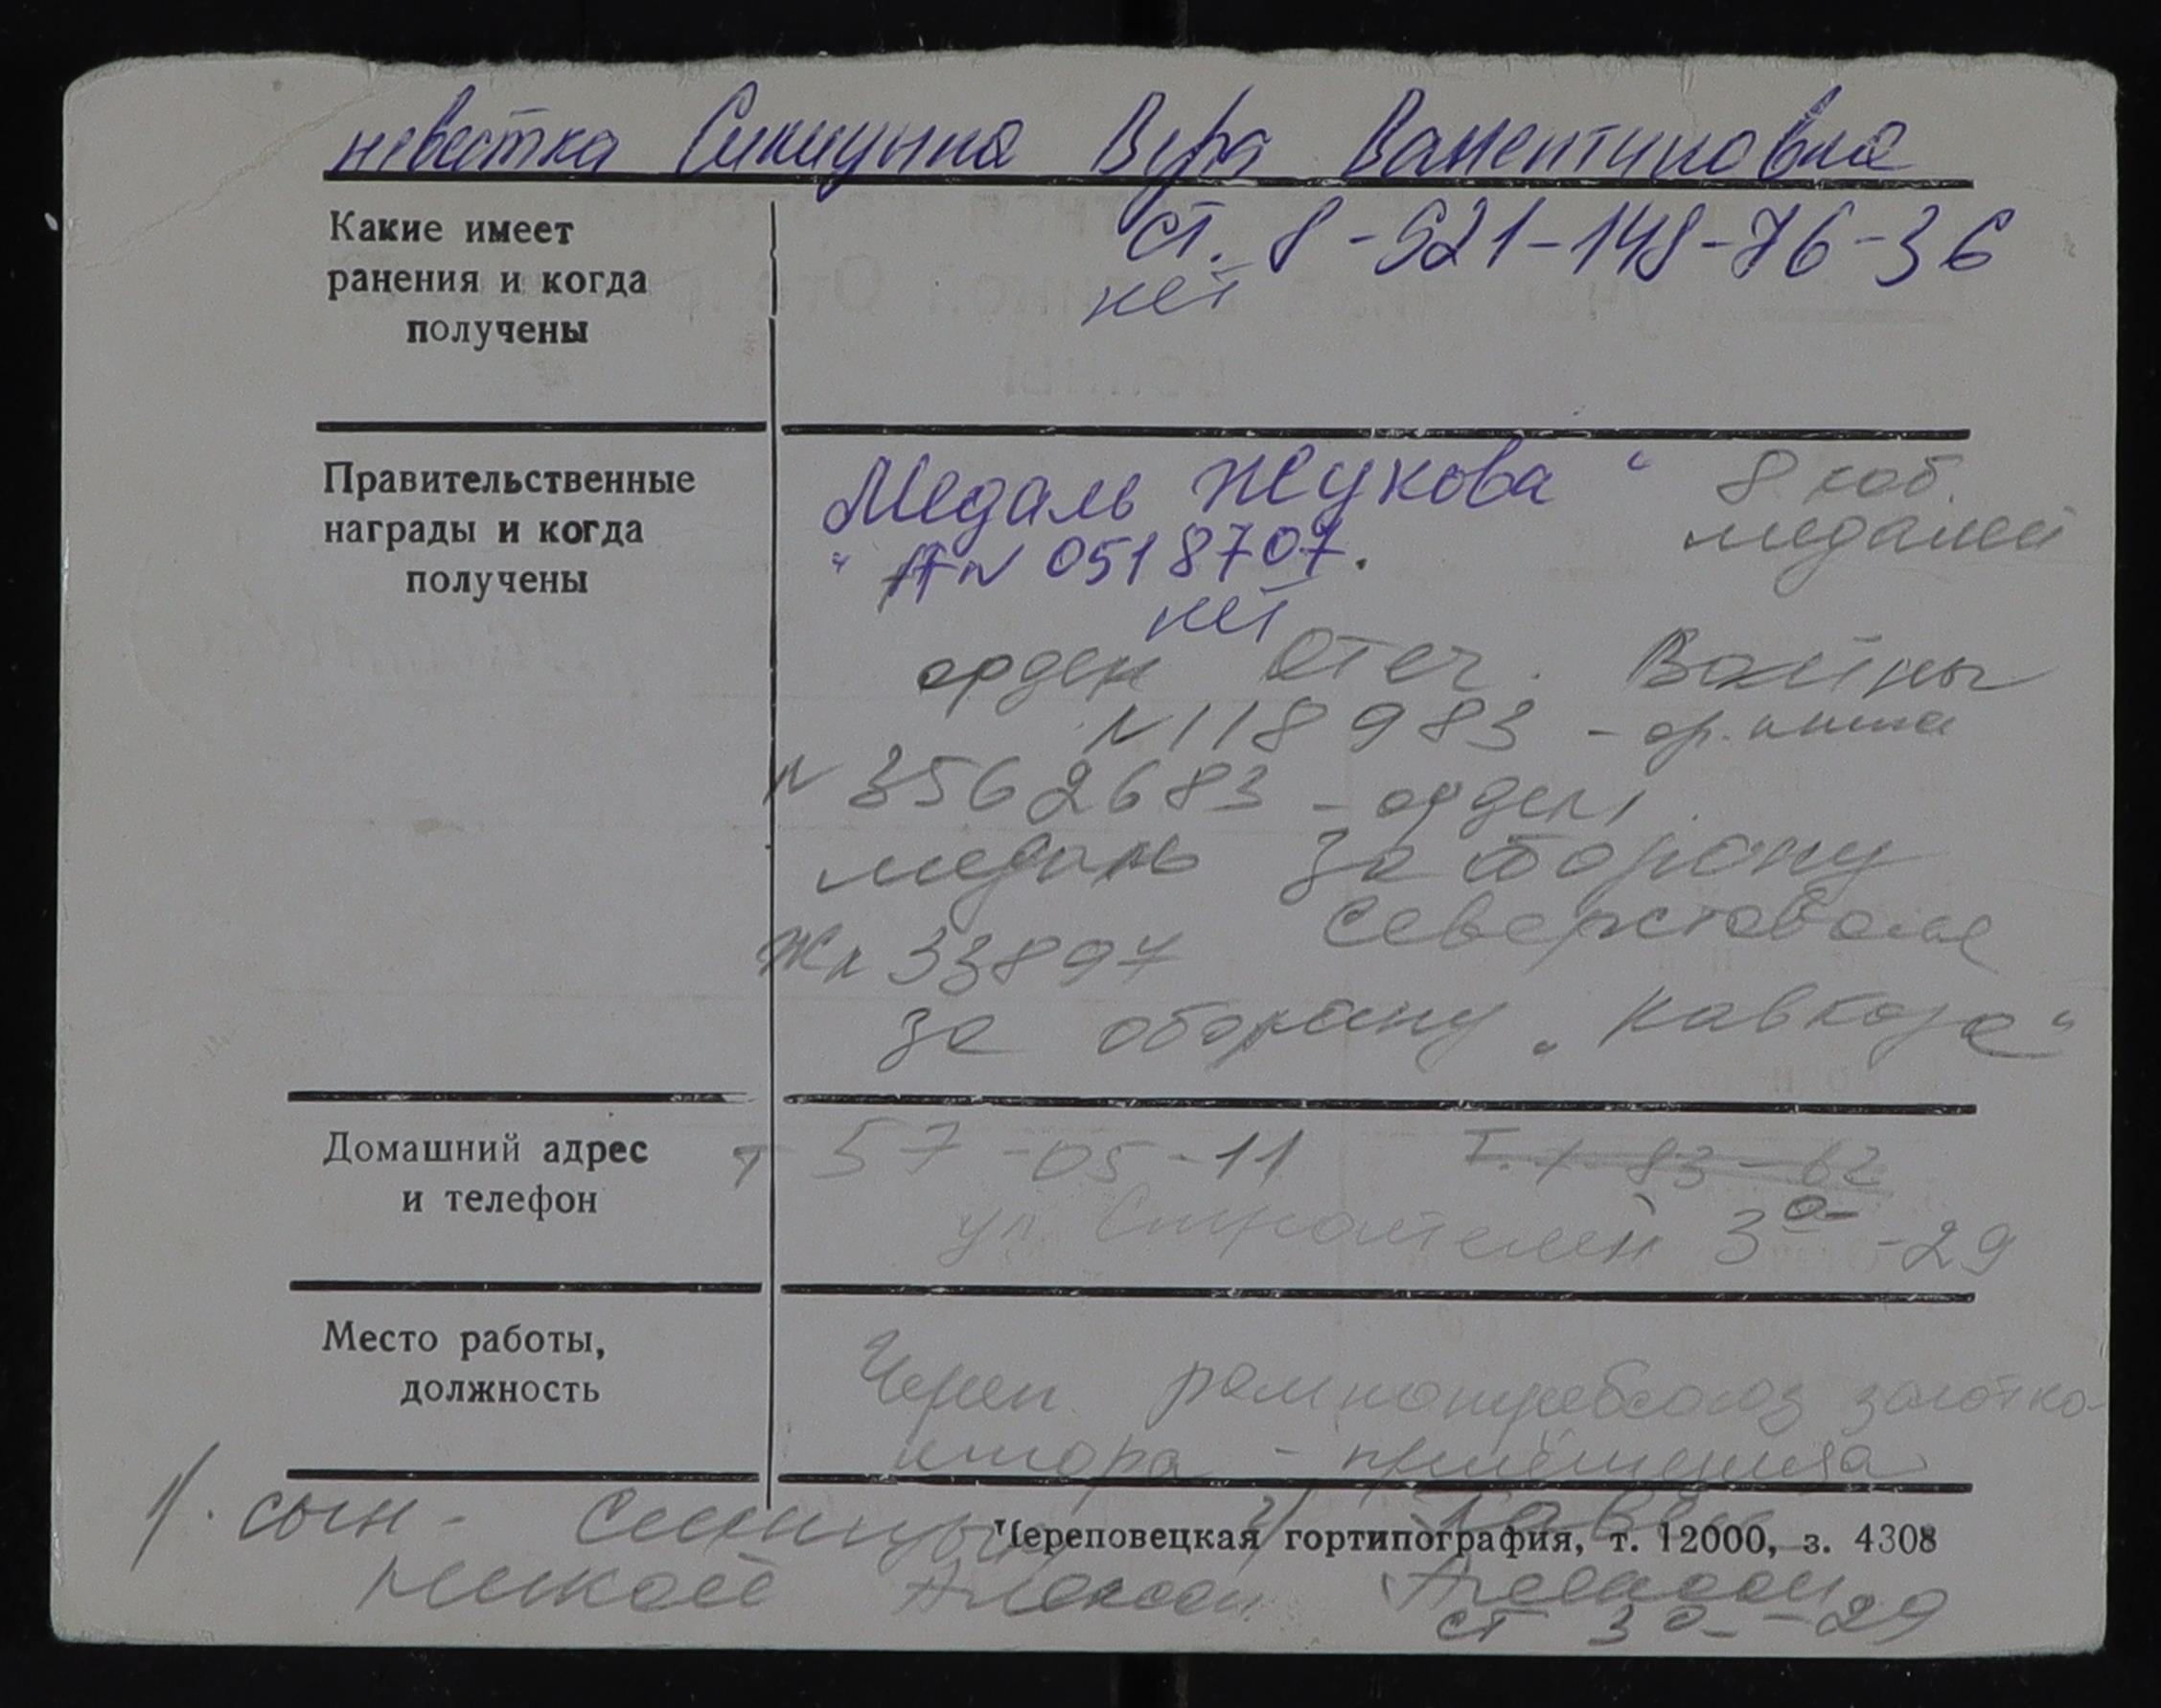 невестка Синицына Вера Валентиновна
Какие имеет
ранения и когда
получены
ст. 8-921-148-76-36
нет
Правительственные
награды и когда
получены
Медаль Жукова " 8 юб.
медалей
" А N 0518707.
нет
орден Отеч. Войны
N 118983 - ор. книжка
N 3562683 - орден.
медаль За оборону
Севастополя
Жк 33897
за оборону „Кавказа"
Домашний адрес
и телефон
т 57-05-11 т. 7-83-62
ул. Строителей 3а - 29
Место работы,
должность
Череп. райпотребсоюз заготко-
нтора -
1). сын - Синицын 2) Павел
Николай Алексан. Алексан
ст 3а - 29
Череповецкая гортипография, т. 12000, з. 4308